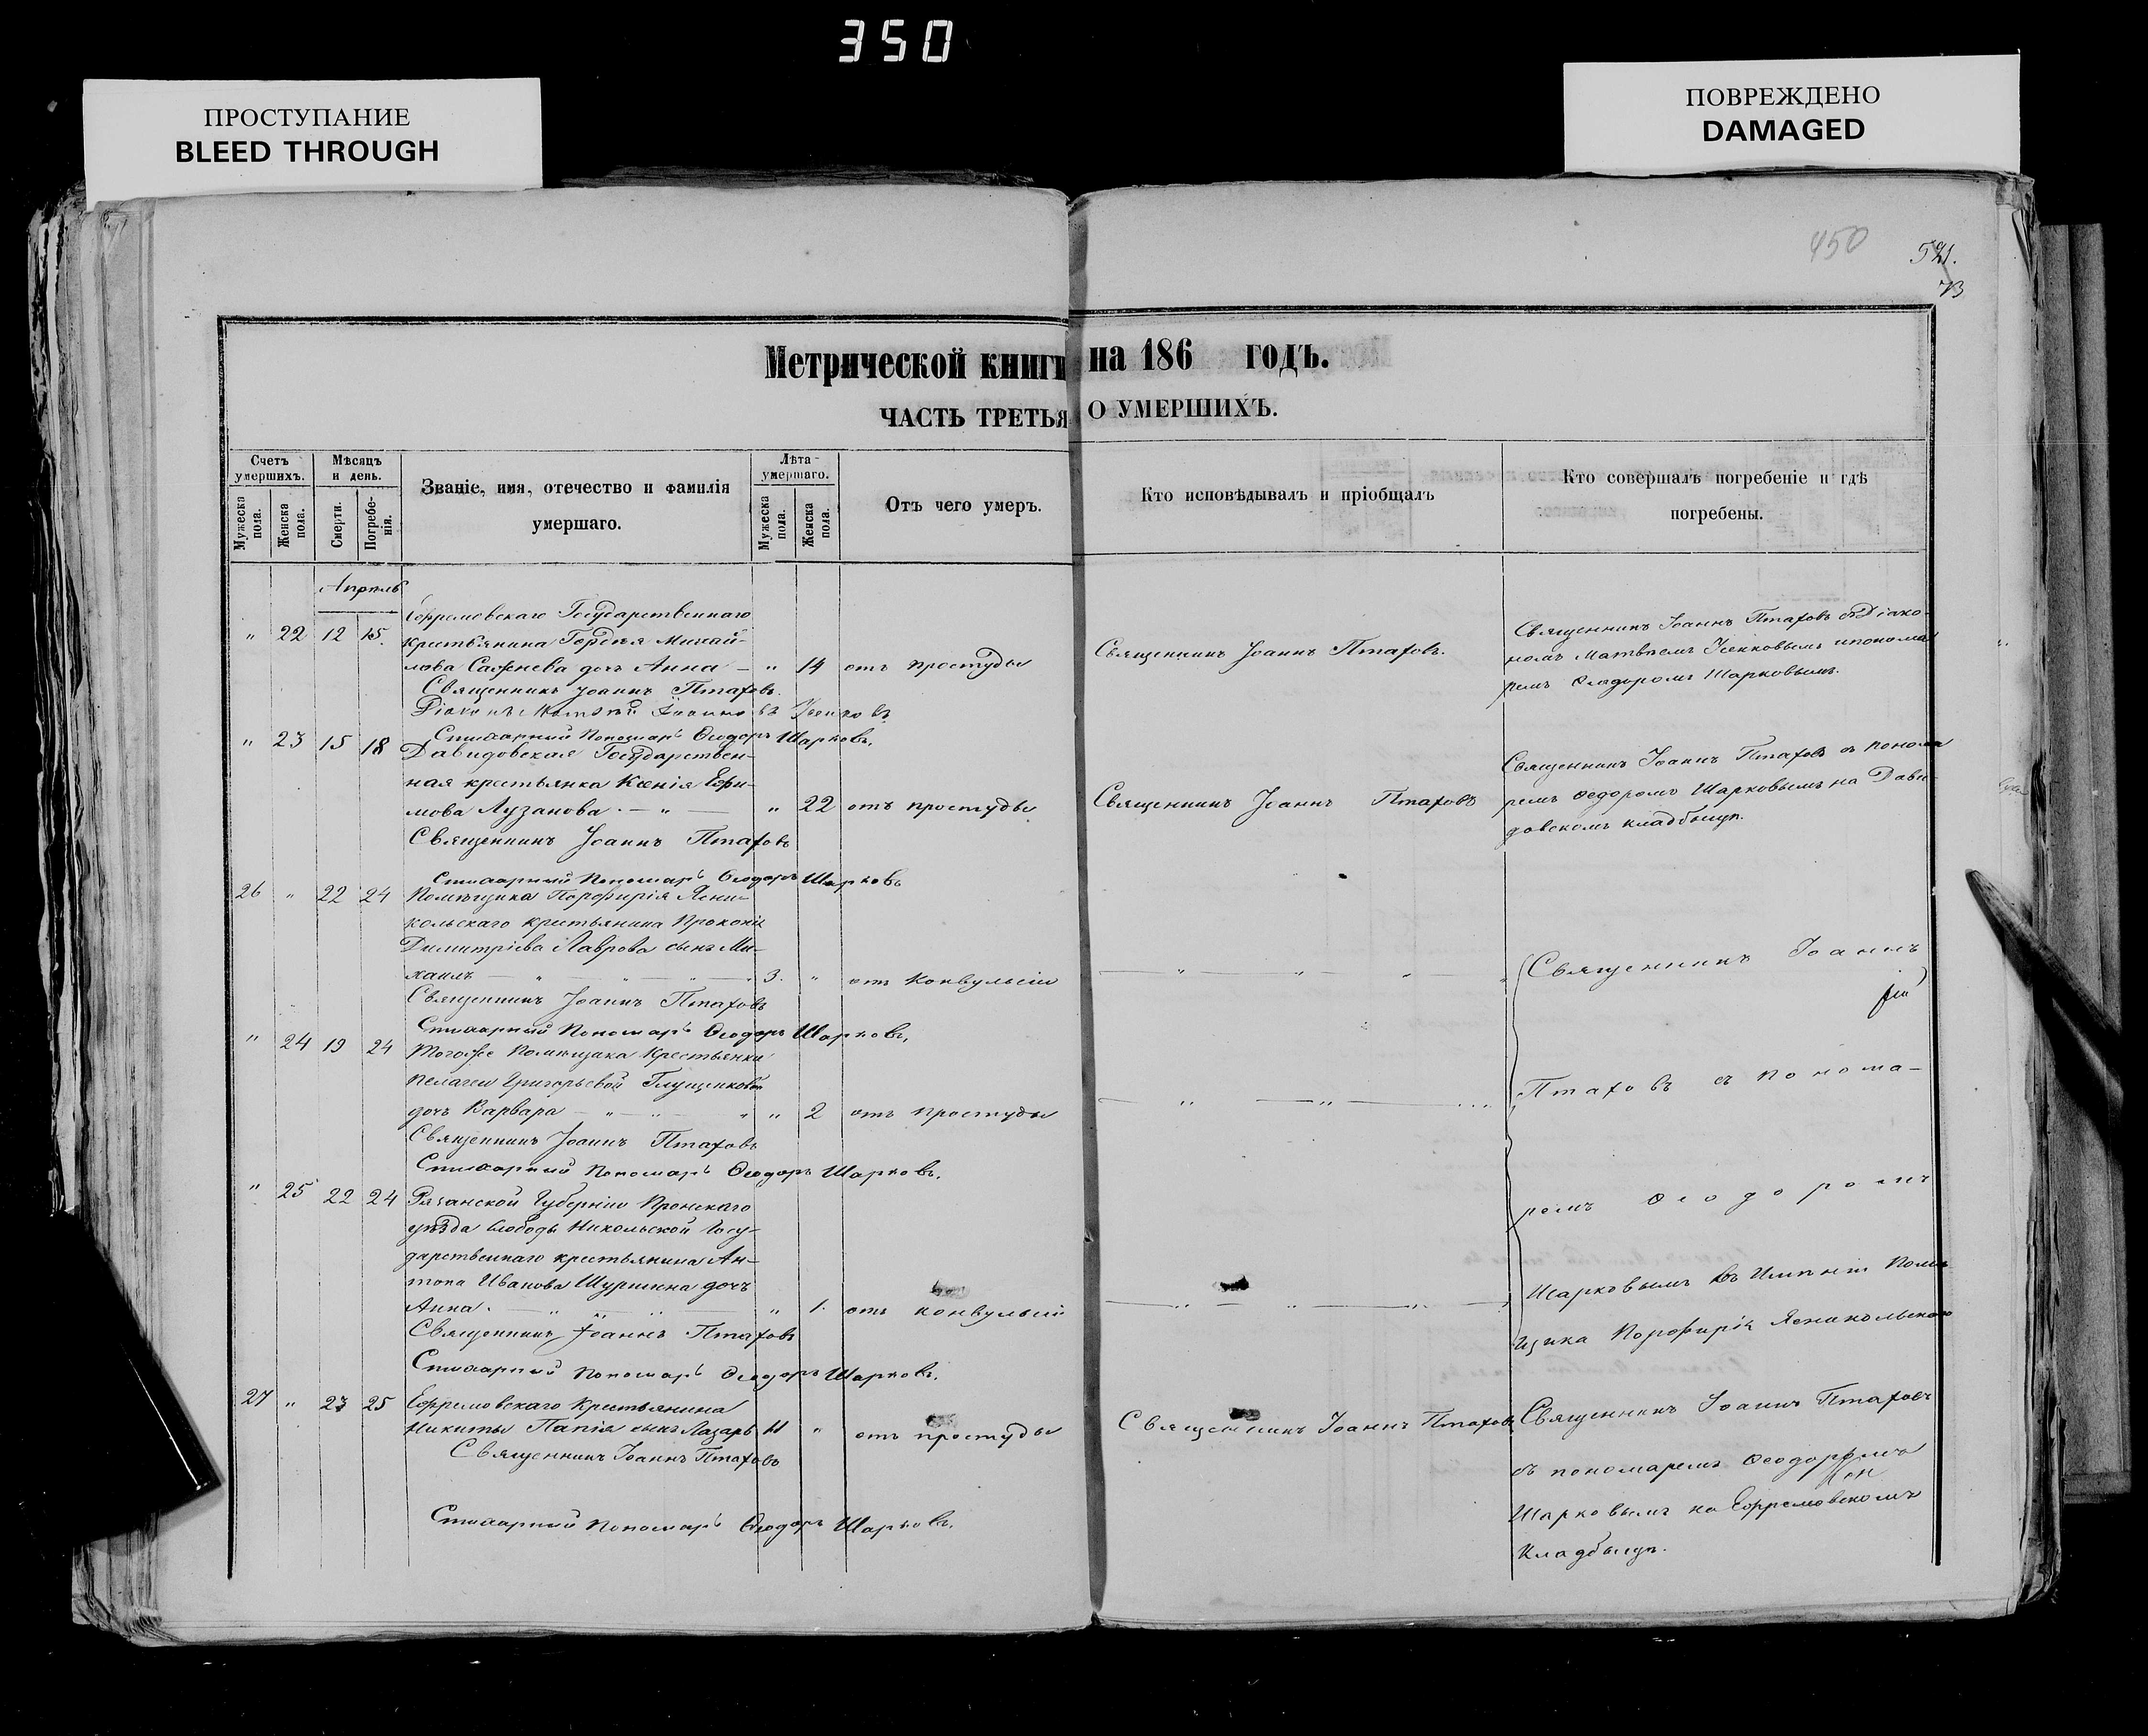 350
ПРОСТУПАНИЕ
BLEED THROUGH
ПОВРЕЖДЕНО
DAMAGED
450
521.
73
Метрической книги на 186 годъ.
ЧАСТЬ ТРЕТЬЯ О УМЕРШИХЪ.
Счетъ умершихъ.
Мужеска пола.
Женска пола.
Мѣсяцъ и день.
Смерти.
Погребенія.
Званіе, имя, отечество и фамилія умершаго.
Лѣта умершаго.
Мужеска пола.
Женска пола.
Отъ чего умеръ.
Кто исповѣдывалъ и пріобщалъ
Кто совершалъ погребеніе и гдѣ погребены.
Апрѣль
Ефремовскаго Государственнаго
" 22 12 15. крестьянина Гордѣя Михай-
лова Сажнева дочь Анна — " 14 отъ простуды
Священникъ Іоаннъ Птаховъ.
Священникъ Іоаннъ Птаховъ съ Діако-
номъ Матвѣемъ Усенковымъ и понома
ремъ Ѳеодоромъ Шарковымъ.
Священникъ Іоаннъ Птаховъ.
Діаконъ Матѳій Усенковъ
Стихарный Пономарь Ѳеодоръ Шарковъ.
" 23 15 18 Давидовская Государствен-
ная крестьянка Ксенія Ефи-
мова Лузанова. — " — " 22 отъ простуды
Священникъ Іоаннъ Птаховъ
Священникъ Іоаннъ Птаховъ съ понома
ремъ Ѳедоромъ Шарковымъ на Дави-
довскомъ кладбищѣ.
Священникъ Іоаннъ Птаховъ
Стихарный Пономарь Ѳеодоръ Шарковъ
26 " 22 24 Помѣщика Порфирія Ясни-
кольскаго крестьянина Прокопія
Димитріева Лаврова сынъ Ми-
хаилъ — " — " — " 3. " отъ конвульсіи
Священникъ Іоаннъ Птаховъ
Стихарный Пономарь Ѳеодоръ Шарковъ,
" 24 19 24 Тогоже Помѣщика Крестьянки
Пелагеи Григорьевой Глущенковой
дочь Варвара — " — " " 2 отъ простуды
Священникъ Іоаннъ Птаховъ
Стихарный Пономарь Ѳеодоръ Шарковъ.
" 25 22 24 Рязанской Губерніи Пронскаго
уѣзда Слободы Никольской Госу-
дарственнаго крестьянина Ан-
тона Иванова Шуршина дочь
Анна. — " — " — " 1. отъ конвульсій
Священникъ Іоаннъ Птаховъ
Стихарный Пономарь Ѳеодоръ Шарковъ.
Священникъ Іоаннъ
Птаховъ съ понома-
ремъ Ѳеодоромъ
Шарковымъ въ Имѣніи Помѣ
щика Порфирія Ясникольскаго
27 " 23 25 Ефремовскаго Крестьянина
Никиты Папія сынъ Лазарь 11 " отъ простуды
Священникъ Іоаннъ Птаховъ
Священникъ Іоаннъ Птаховъ
съ пономаремъ Ѳеодоромъ
Шарковымъ на Ефремовскомъ
Кладбищѣ.
Священникъ Іоаннъ Птаховъ
Стихарный Пономарь Ѳеодоръ Шарковъ.